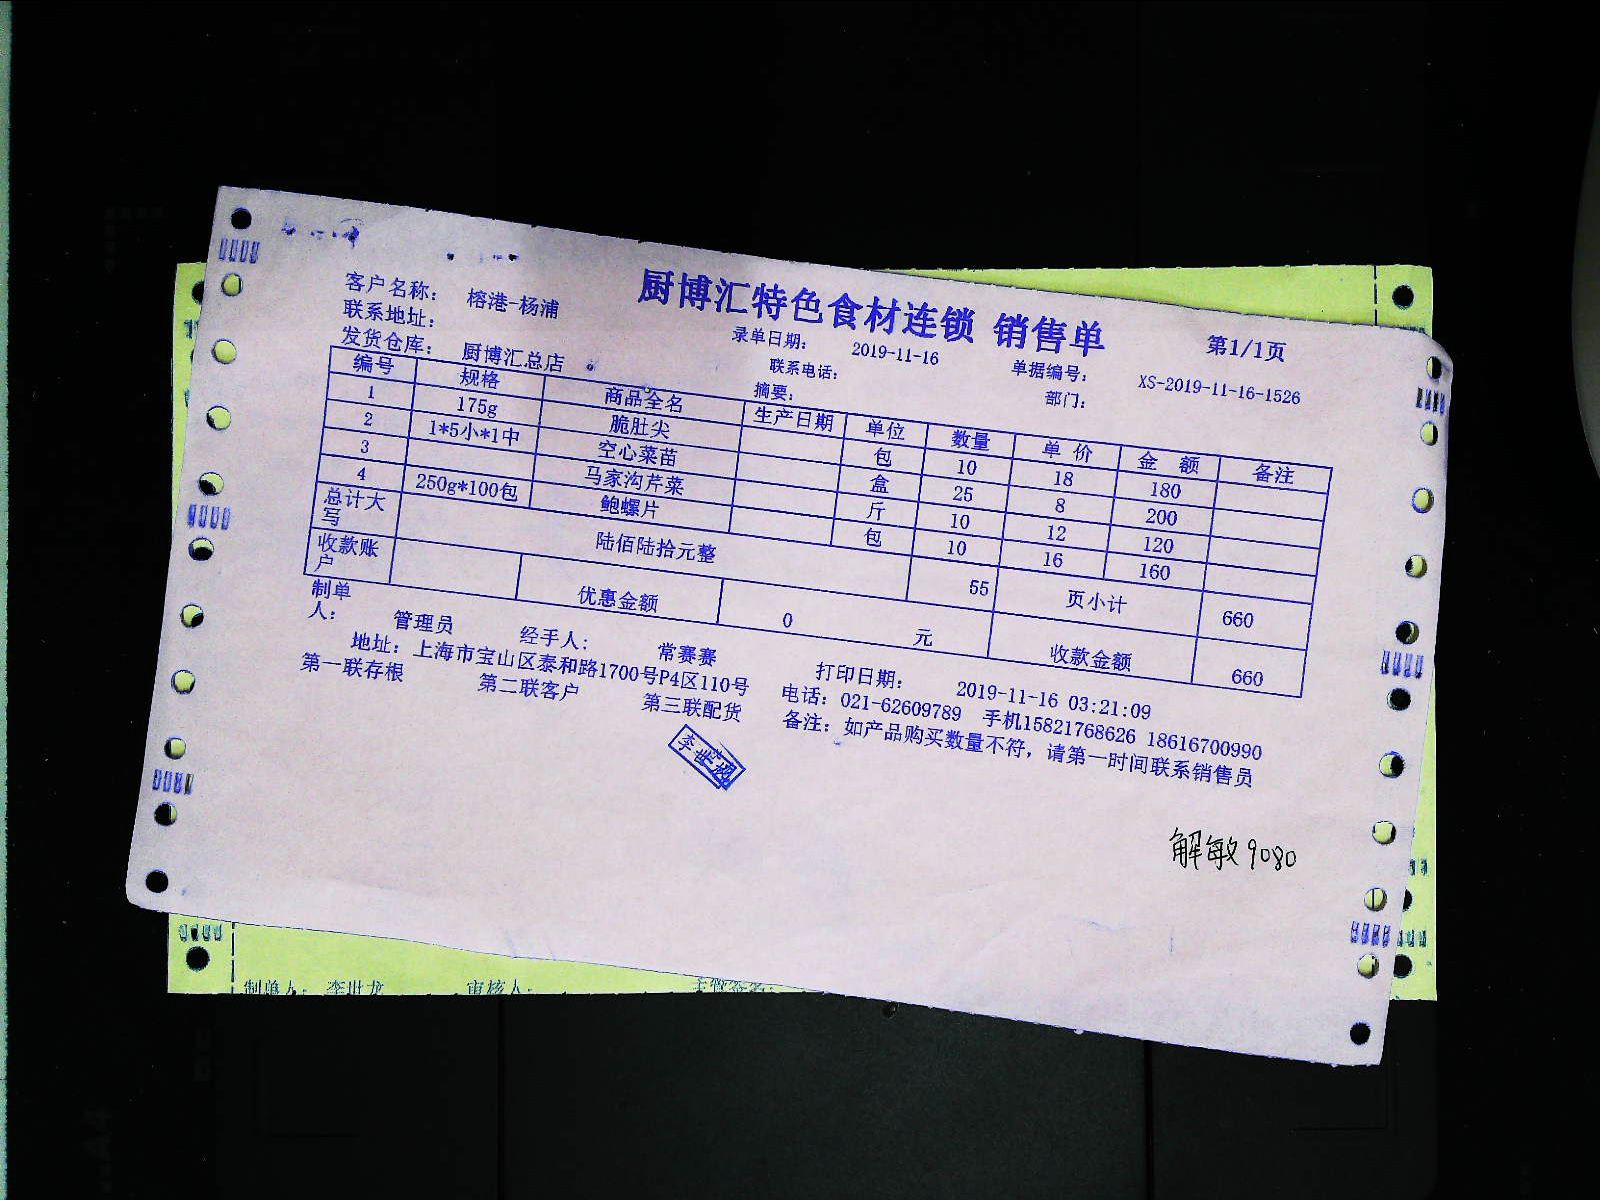 厨博汇特色食材连锁 销售单
第1/1页
客户名称： 榕港-杨浦
录单日期： 2019-11-16
单据编号： XS-2019-11-16-1526
联系地址：
联系电话：
部门：
发货仓库： 厨博汇总店
摘要：
编号 规格 商品全名 生产日期 单位 数量 单 价 金 额 备注
1 175g 脆肚尖 包 10 18 180
2 1*5小*1中 空心菜苗 盒 25 8 200
3 马家沟芹菜 斤 10 12 120
4 250g*100包 鲍螺片 包 10 16 160
总计大写 陆佰陆拾元整 55 页小计 660
收款账户 优惠金额 0 元 收款金额 660
制单人： 管理员 经手人： 常赛赛 打印日期： 2019-11-16 03:21:09
地址：上海市宝山区泰和路1700号P4区110号 电话：021-62609789 手机15821768626 18616700990
第一联存根 第二联客户 第三联配货 备注：如产品购买数量不符，请第一时间联系销售员
解敏9080
制单人： 李世龙 审核人：